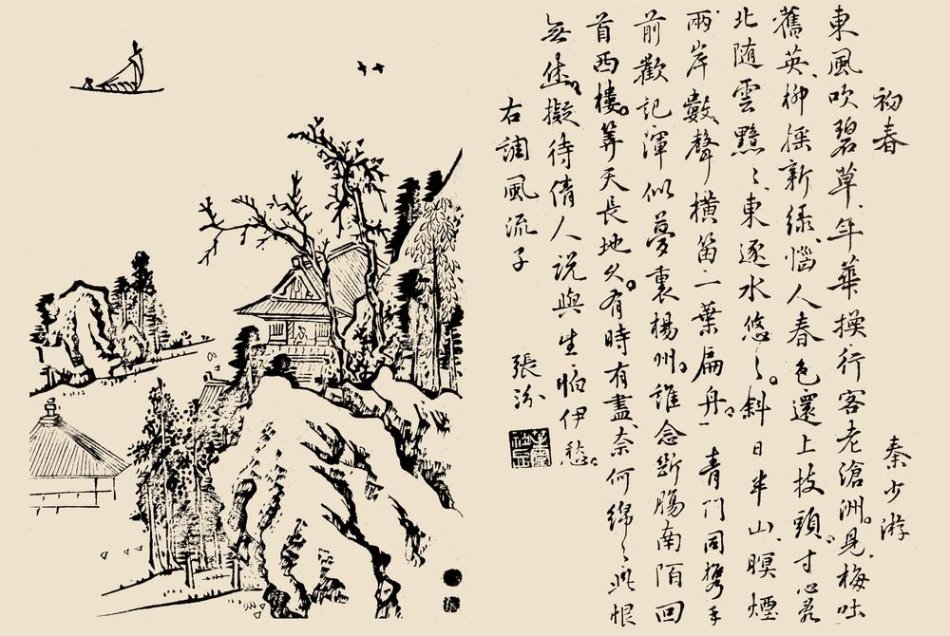 初春 秦少游
東風吹碧草、年華換、行客老滄洲。見、梅吐
舊英、柳搖新綠、惱人春色還上枝頭。寸心亂
北隨雲黯〻、東逐水悠〻。斜日半山、暝煙
兩岸、數聲橫笛、一葉扁舟。青門同攜手
前歡記渾似夢裏楊州。誰念斷腸南陌回
首西樓。筭天長地久、有時有盡、奈何綿〻、此恨
無休。擬待倩人說與生怕伊愁。
右調風流子
張汾